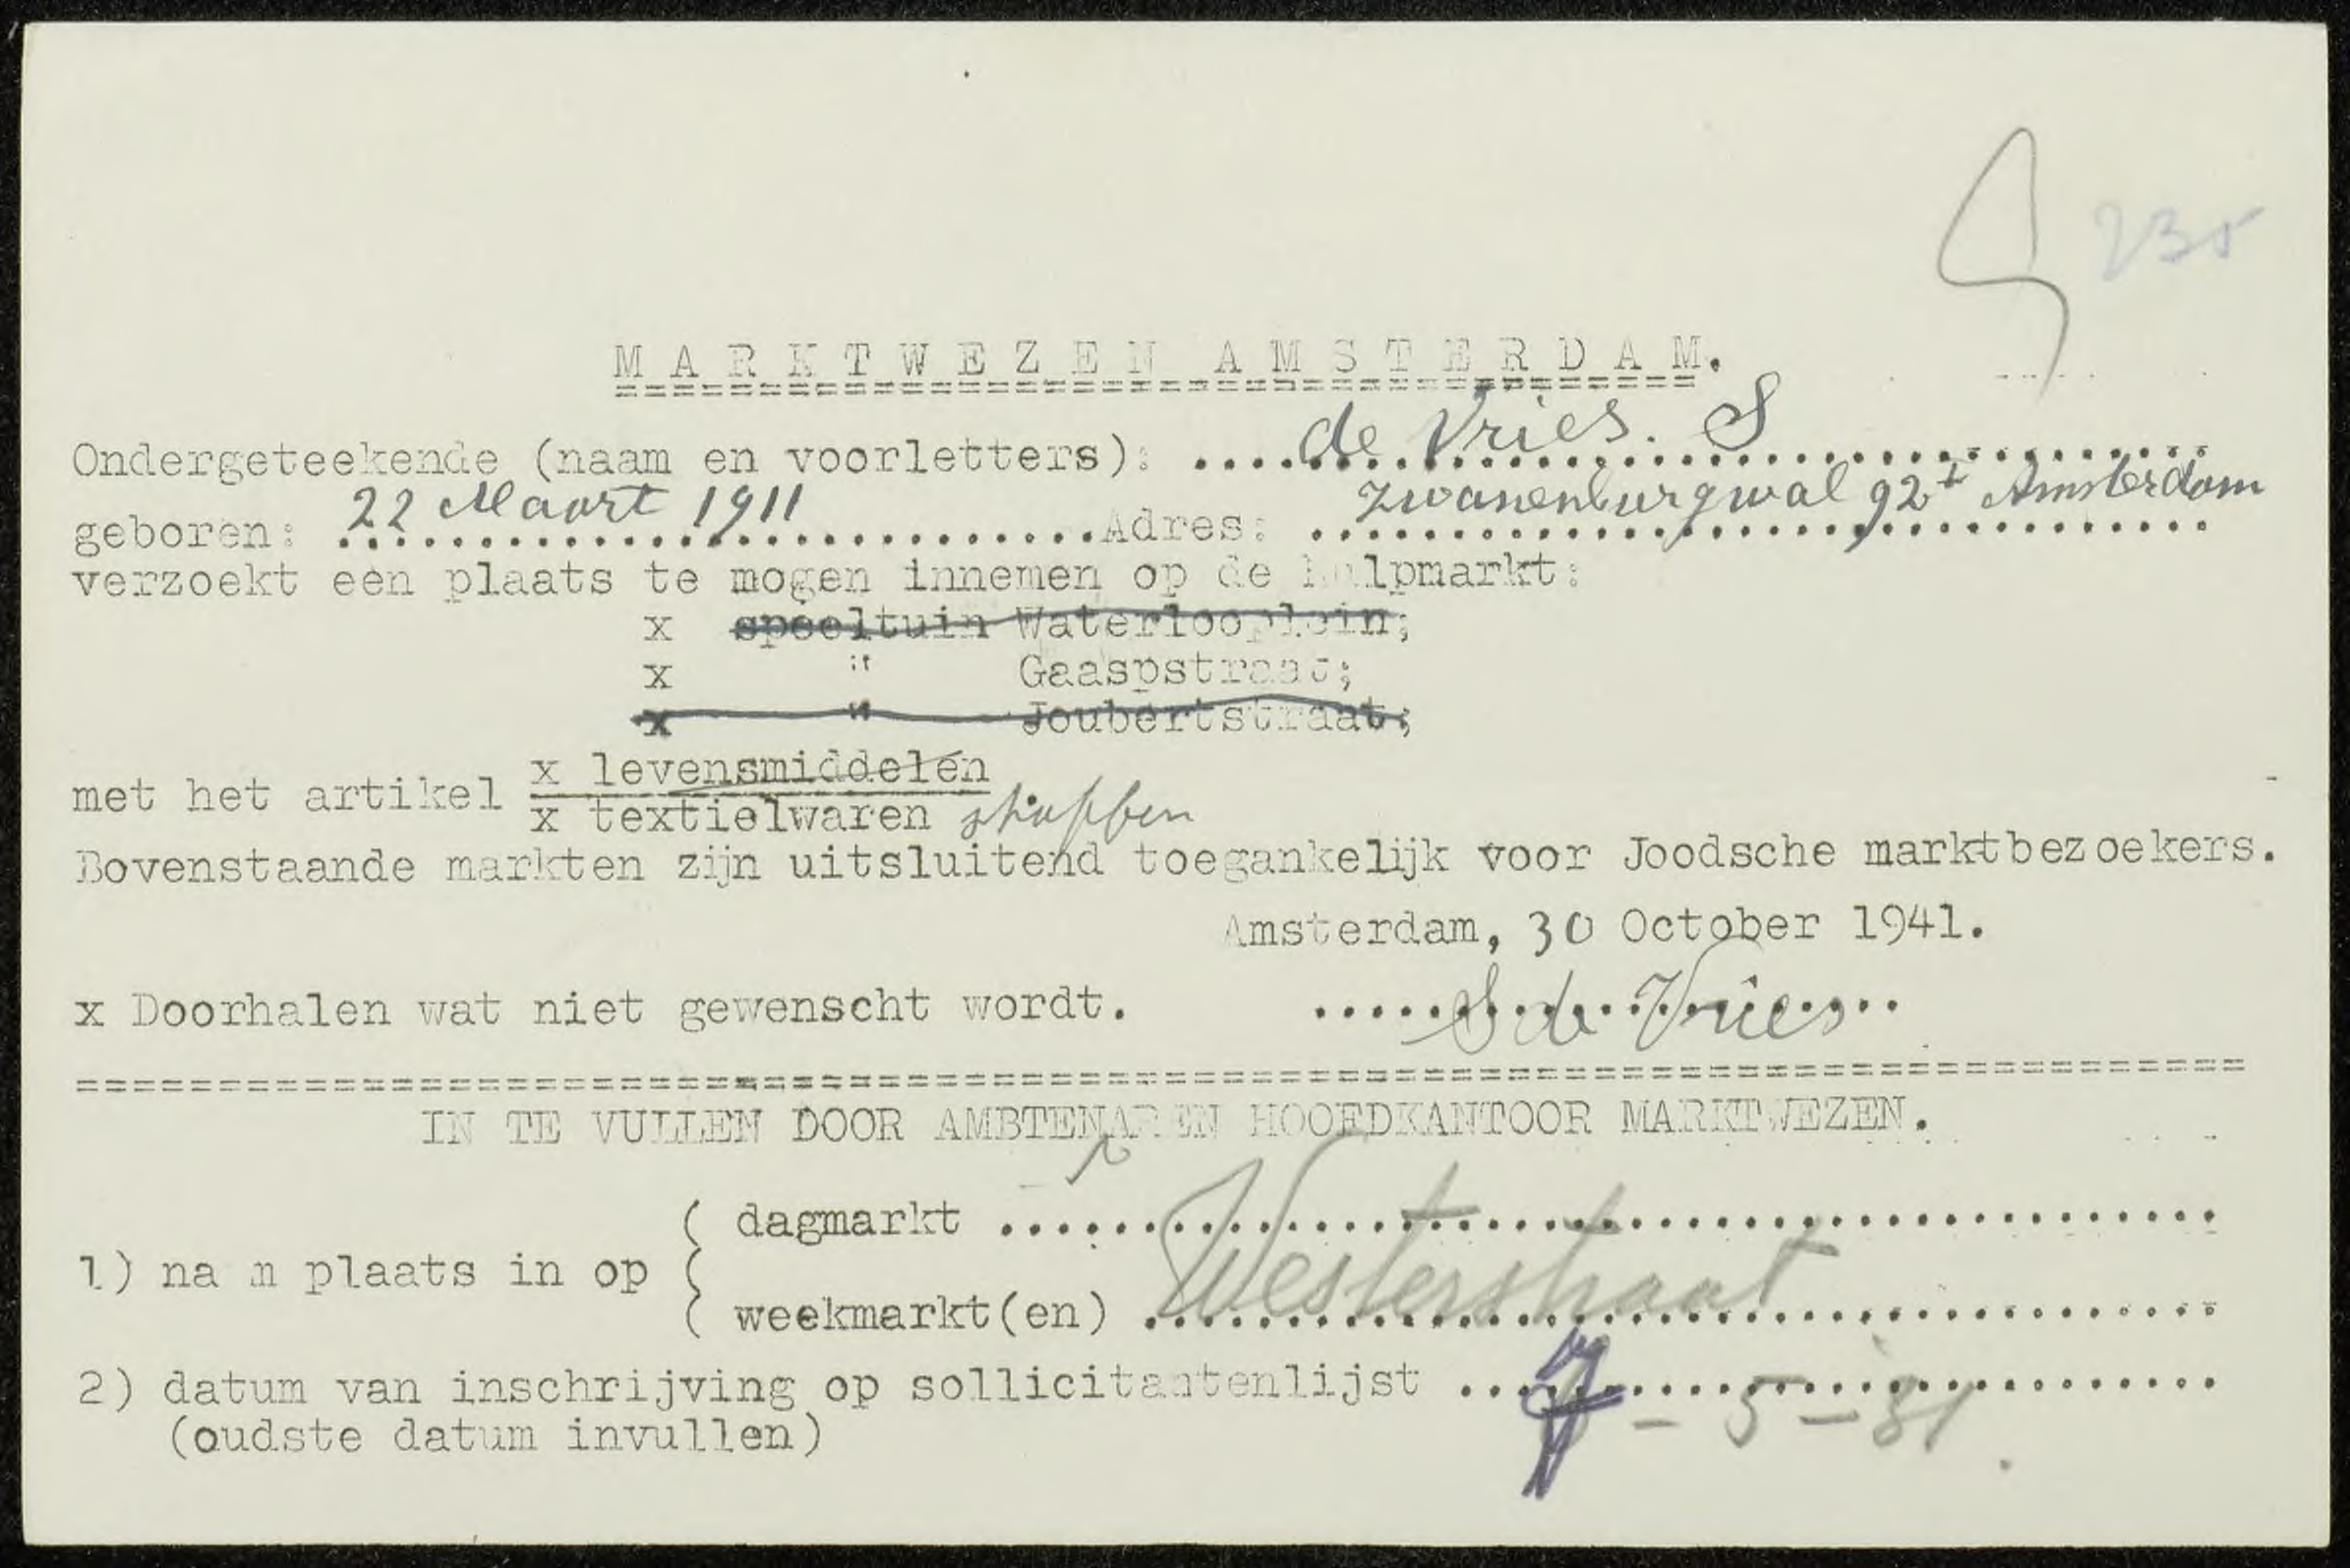 235
MARKTWEZEN AMSTERDAM.
Ondergeteekende (naam en voorletters): ....de Vries. S
geboren: 22 Maart 1911 Adres: Zwanenburgwal 92 I Amsterdam
verzoekt een plaats te mogen innemen op de hulpmarkt:
x speeltuin Waterlooplein;
x " Gaaspstraat;
x " Joubertstraat;
met het artikel x levensmiddelen
x textielwaren stoffen
Bovenstaande markten zijn uitsluitend toegankelijk voor Joodsche marktbezoekers.
Amsterdam, 30 October 1941.
x Doorhalen wat niet gewenscht wordt. S de Vries
IN TE VULLEN DOOR AMBTENAREN HOOFDKANTOOR MARKTWEZEN.
( dagmarkt
1) nam plaats in op ( Westerstraat
( weekmarkt(en)
2) datum van inschrijving op sollicitantenlijst - 5 - 31
(oudste datum invullen)